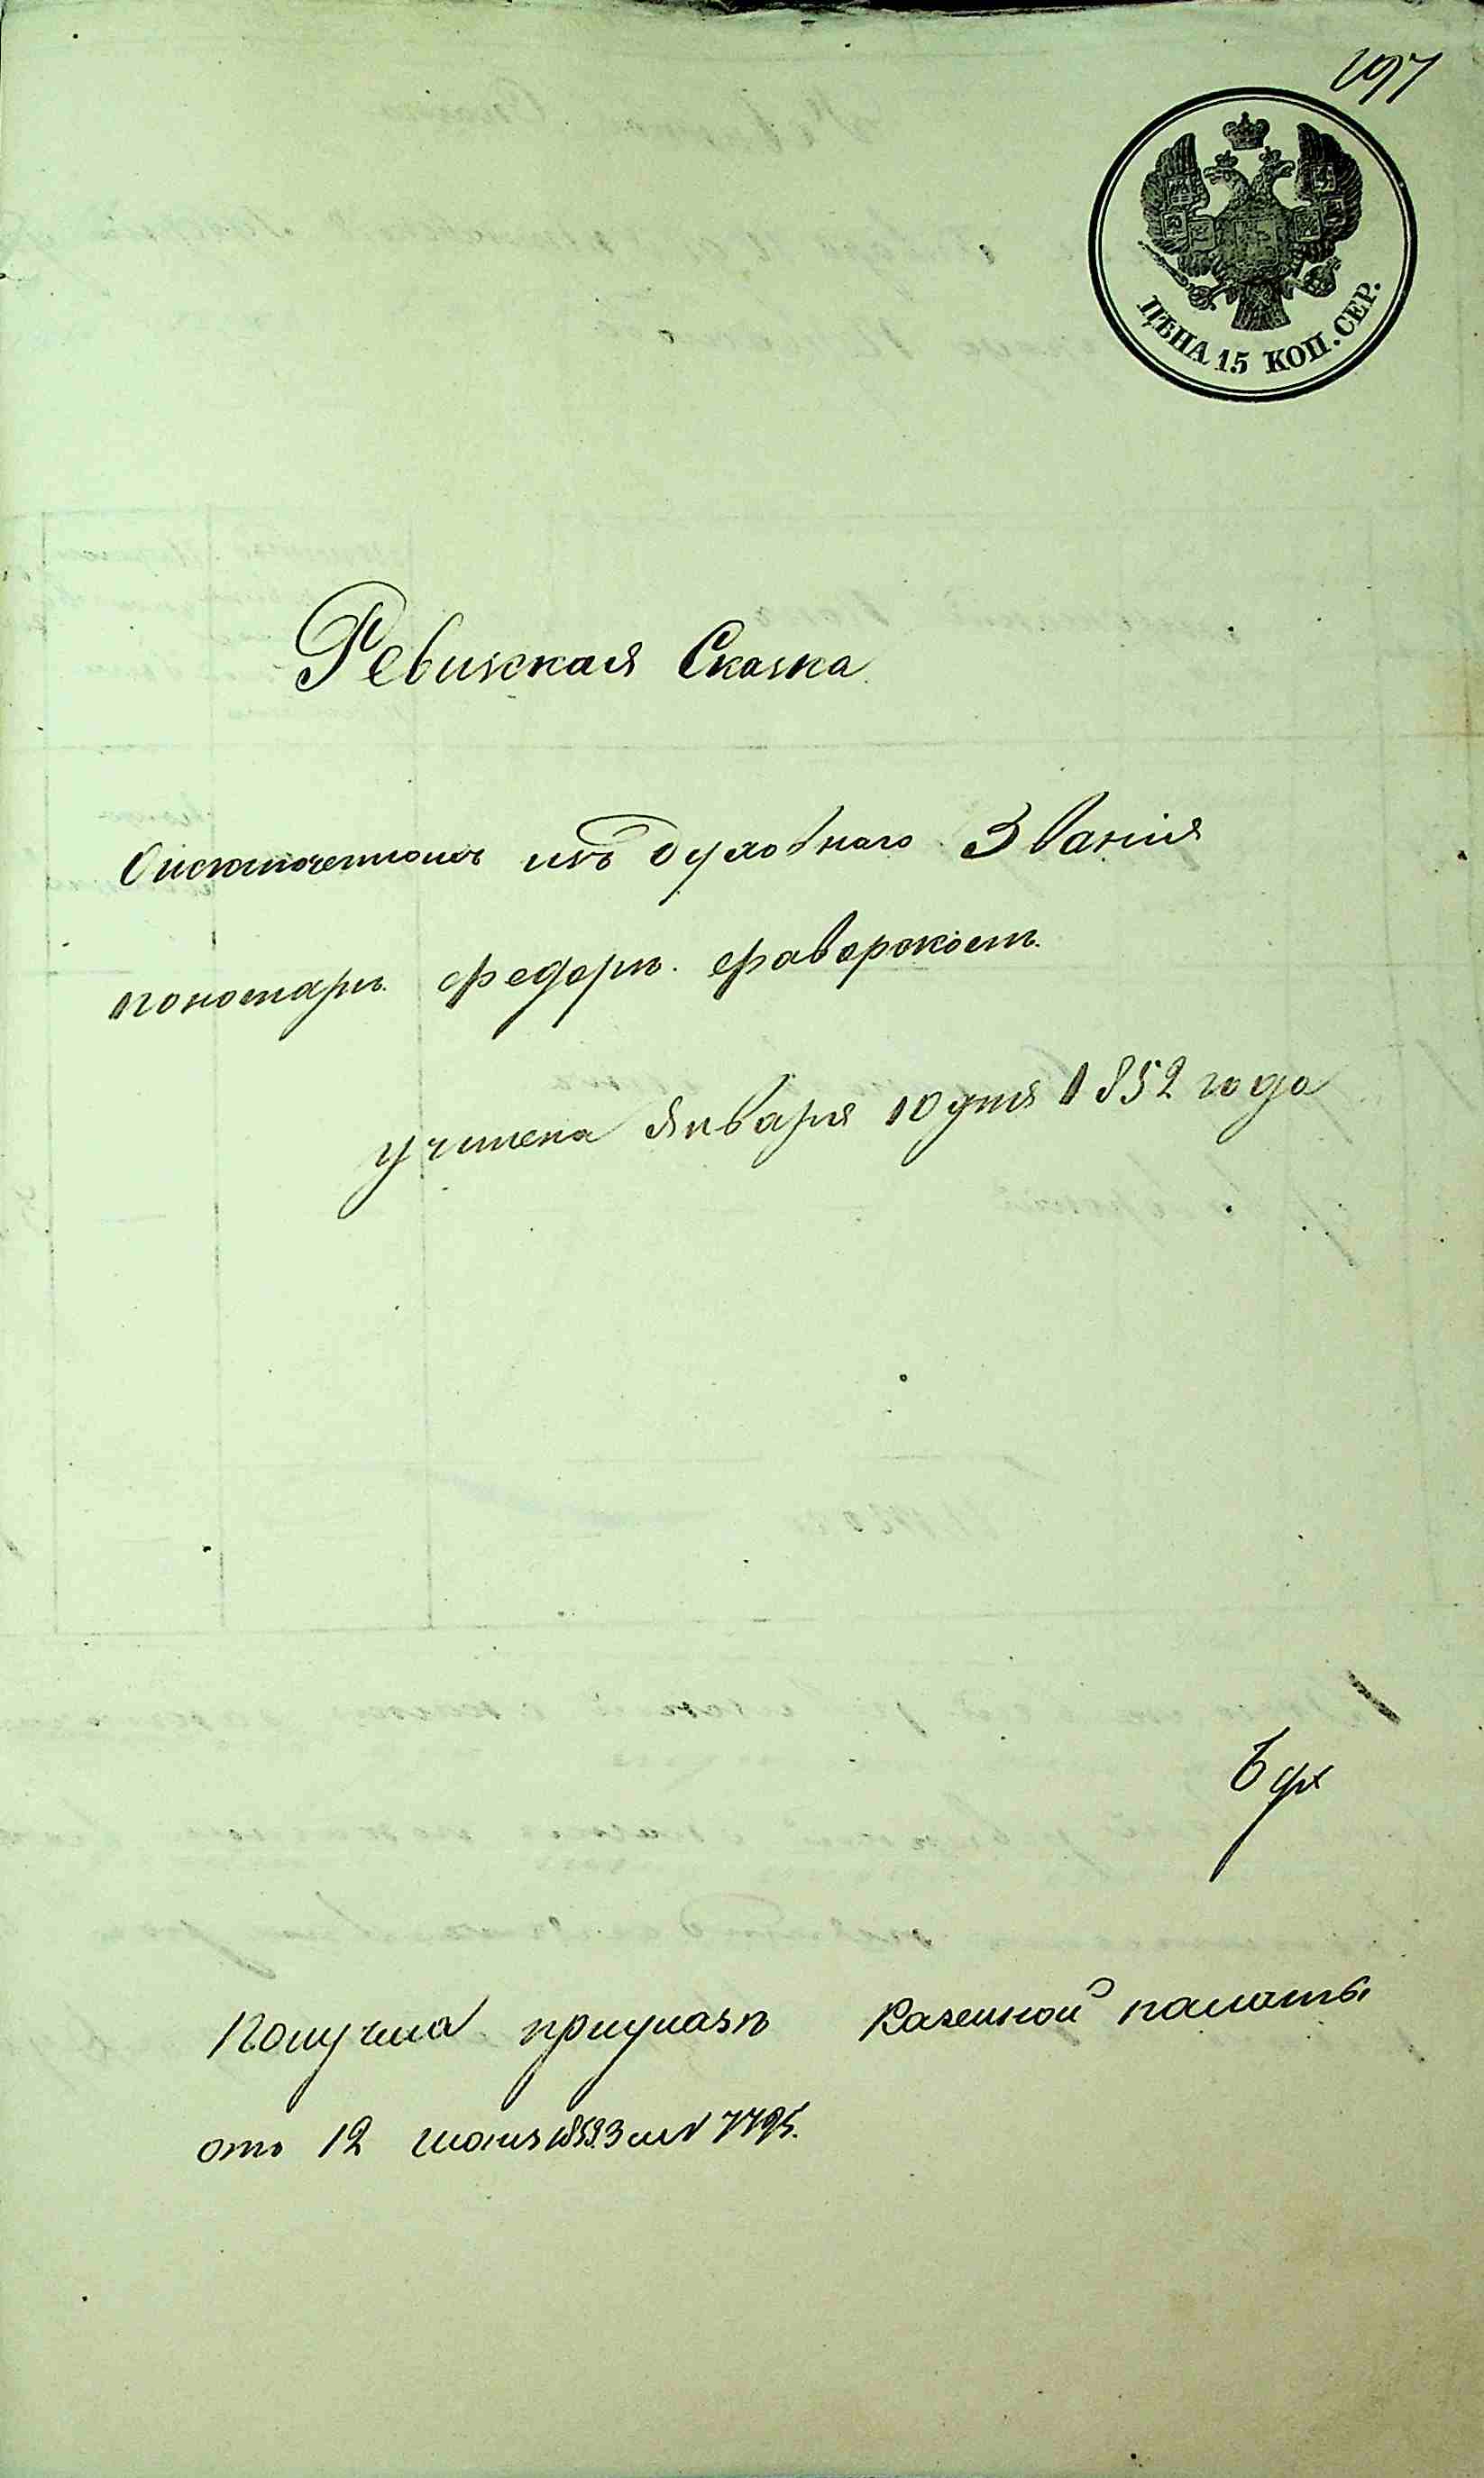 ЦѢНА 15 КОП. СЕР.
Ревизская Сказка
О исключенномъ изъ духовнаго Званія
пономарѣ Федорѣ Фаворскомъ.
учинена Января 10 дня 1852 года
Получена приуказѣ Казенной палаты
отъ 12 июня